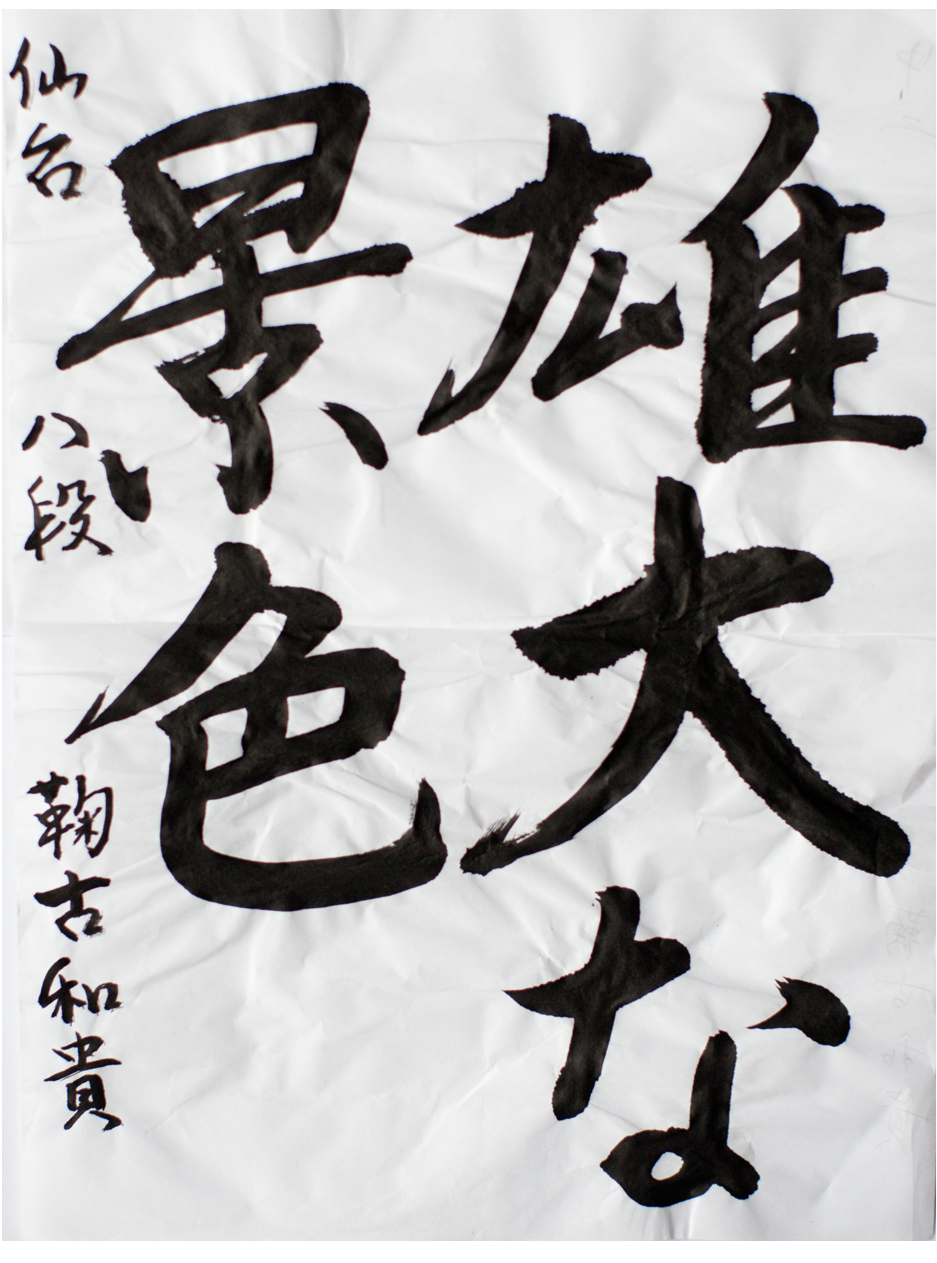 雄大な
景色
仙台 八段 鞠古和貴